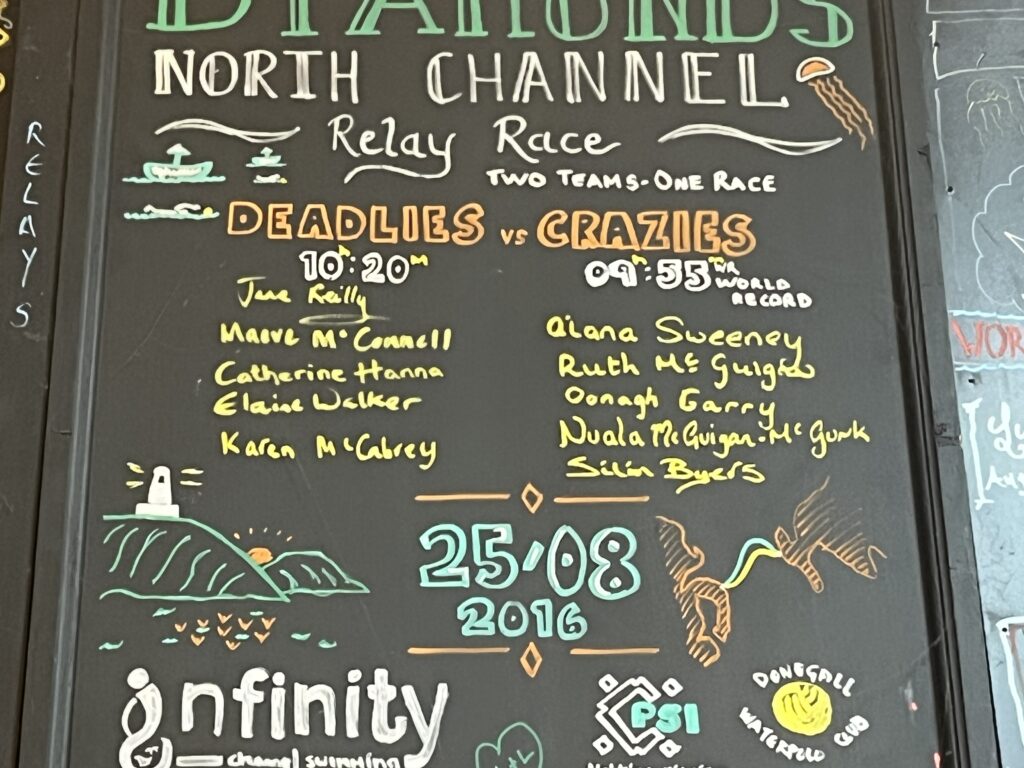 DIAMONDS
NORTH CHANNEL
Relay Race
TWO TEAMS-ONE RACE
DEADLIES VS CRAZIES
10H:20M
09H:55M WR
WORLD
RECORD
Maeve McConnell
Catherine Hanna
Elaine Walker
Karen McCabrey
Sweeney
Ruth McGuigan
Oonagh Garry
Nuala McGuigan-McGurk
Byers
25/08
2016
infinity
channel swimming
PSI
DONEGALL
WATERPOLO CLUB
RELAYS
WOR